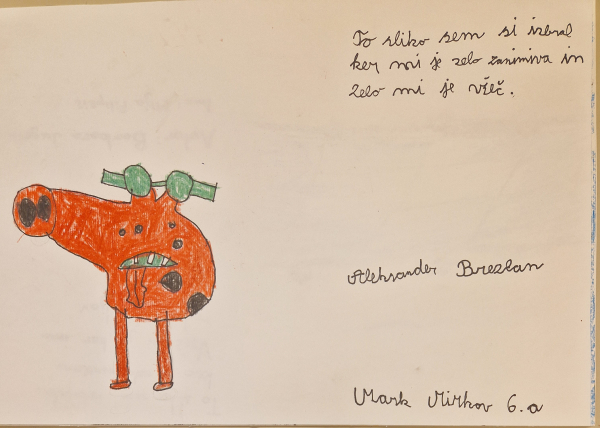 To sliko sem si izbral
ker mi je zelo zanimiva in
zelo mi je všeč.
Aleksander Brezlan
Mark Mirkov 6.a